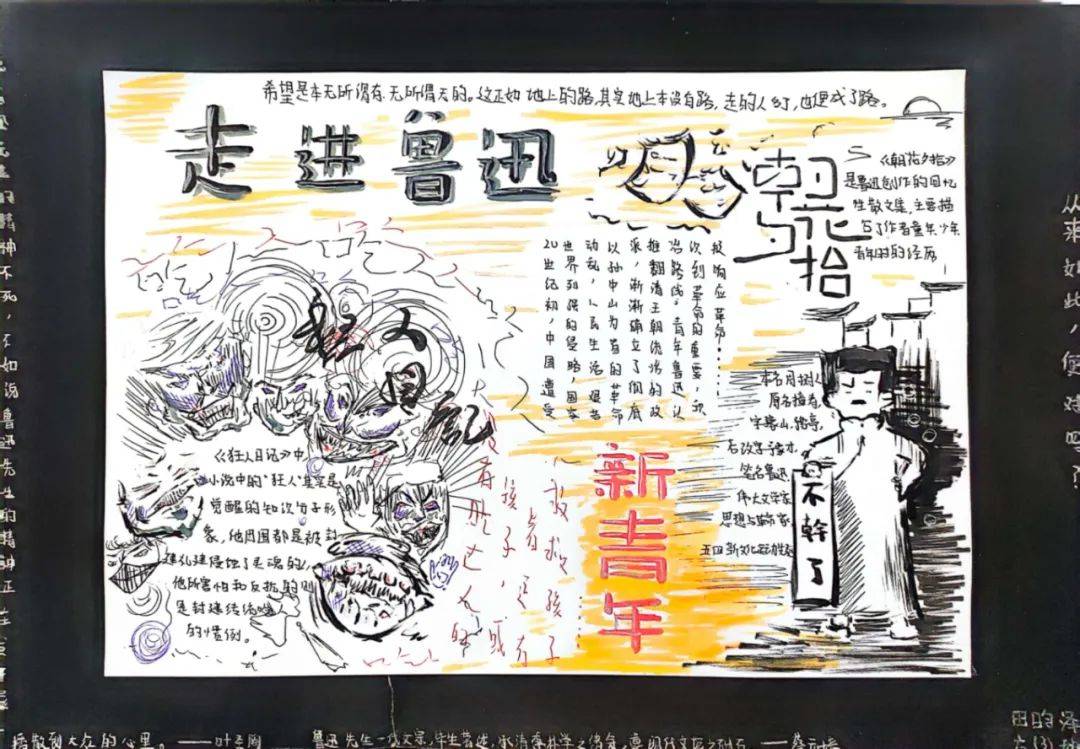 希望是本无所谓有,无所谓无的。这正如地上的路,其实地上本没有路,走的人多了,也便成了路。
走进鲁迅
朝花夕拾
《朝花夕拾》
是鲁迅创作的回忆
性散文集,主要描
写了作者童年少年
青年时的经历
20世纪初,中国遭受
世界列强的侵略,国家
动乱,人民生活艰苦
以孙中山为首的革命
派,渐渐确立了彻底
推翻清王朝统治的政
治路线。青年鲁迅认
次到革命的重要,次
被响应革命……
狂人日记
《狂人日记》中
小说中的"狂人"其实是
觉醒的知识分子形
象,他周围都是被封
建礼建侵蚀了灵魂的人
他所害怕和反抗的则
是封建传统吃人
的惯例。
没有吃过人的
孩子,或
者还有
救救孩子
新青年
本名周树人
原名樟寿,
字豫山、豫亭,
后改字豫才,
笔名鲁迅
伟大文学家
思想与革命家
五四新文化运动
不幹了
从来如此,便对吗?
精神不死,不如说鲁迅先生的精神正在
播散到大众的心里。——叶圣陶
鲁迅先生一代文宗,毕生著述,承清季朴学之绪余,奠现代文坛之础石。——蔡元培
田昀泽